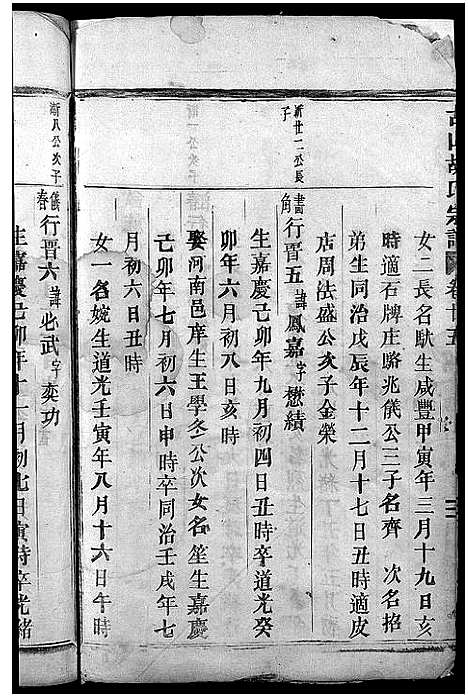 山胡氏宗譜 卷十五
女二長名馱生咸豐甲寅年三月十九日亥
時適石牌庄駱兆儀公三子名齊 次名招
弟生同治戊辰年十二月十七日丑時適皮
店周法盛公次子金榮
新廿一公長子
書角 行晋五諱鳳嘉字懋績
生嘉慶己卯年九月初四日丑時卒道光癸
卯年六月初八日亥時
娶河南邑庠生王學冬公次女名笙生嘉慶
己卯年七月初六日申時卒同治壬戌年七
月初六日丑時
女一名婉生道光壬寅年八月十六日午時
新八公次子
儀春 行晋六諱必武字奕功
生嘉慶己卯年十一月初七日寅時卒光緒